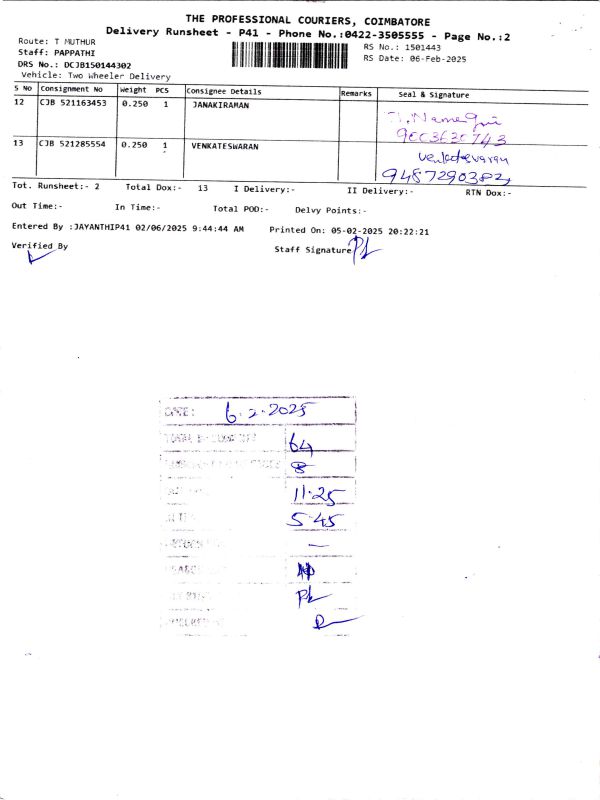 THE PROFESSIONAL COURIERS, COIMBATORE
Delivery Runsheet - P41 - Phone No.:0422-3505555 - Page No.:2
Route: T MUTHUR
Staff: PAPPATHI
DRS No.: DCJB150144302
Vehicle: Two Wheeler Delivery
RS No.: 1501443
RS Date: 06-Feb-2025
S No Consignment No Weight PCS Consignee Details Remarks Seal & Signature
12 CJB 521163453 0.250 1 JANAKIRAMAN
9003630743
13 CJB 521285554 0.250 1 VENKATESWARAN
venkateswaran
9487290382
Tot. Runsheet:- 2 Total Dox:- 13 I Delivery:- II Delivery:- RTN Dox:-
Out Time:- In Time:- Total POD:- Delvy Points:-
Entered By :JAYANTHIP41 02/06/2025 9:44:44 AM Printed On: 05-02-2025 20:22:21
Verified By Staff Signature
DATE: 6.2.2025
64
8
11.25
5.45